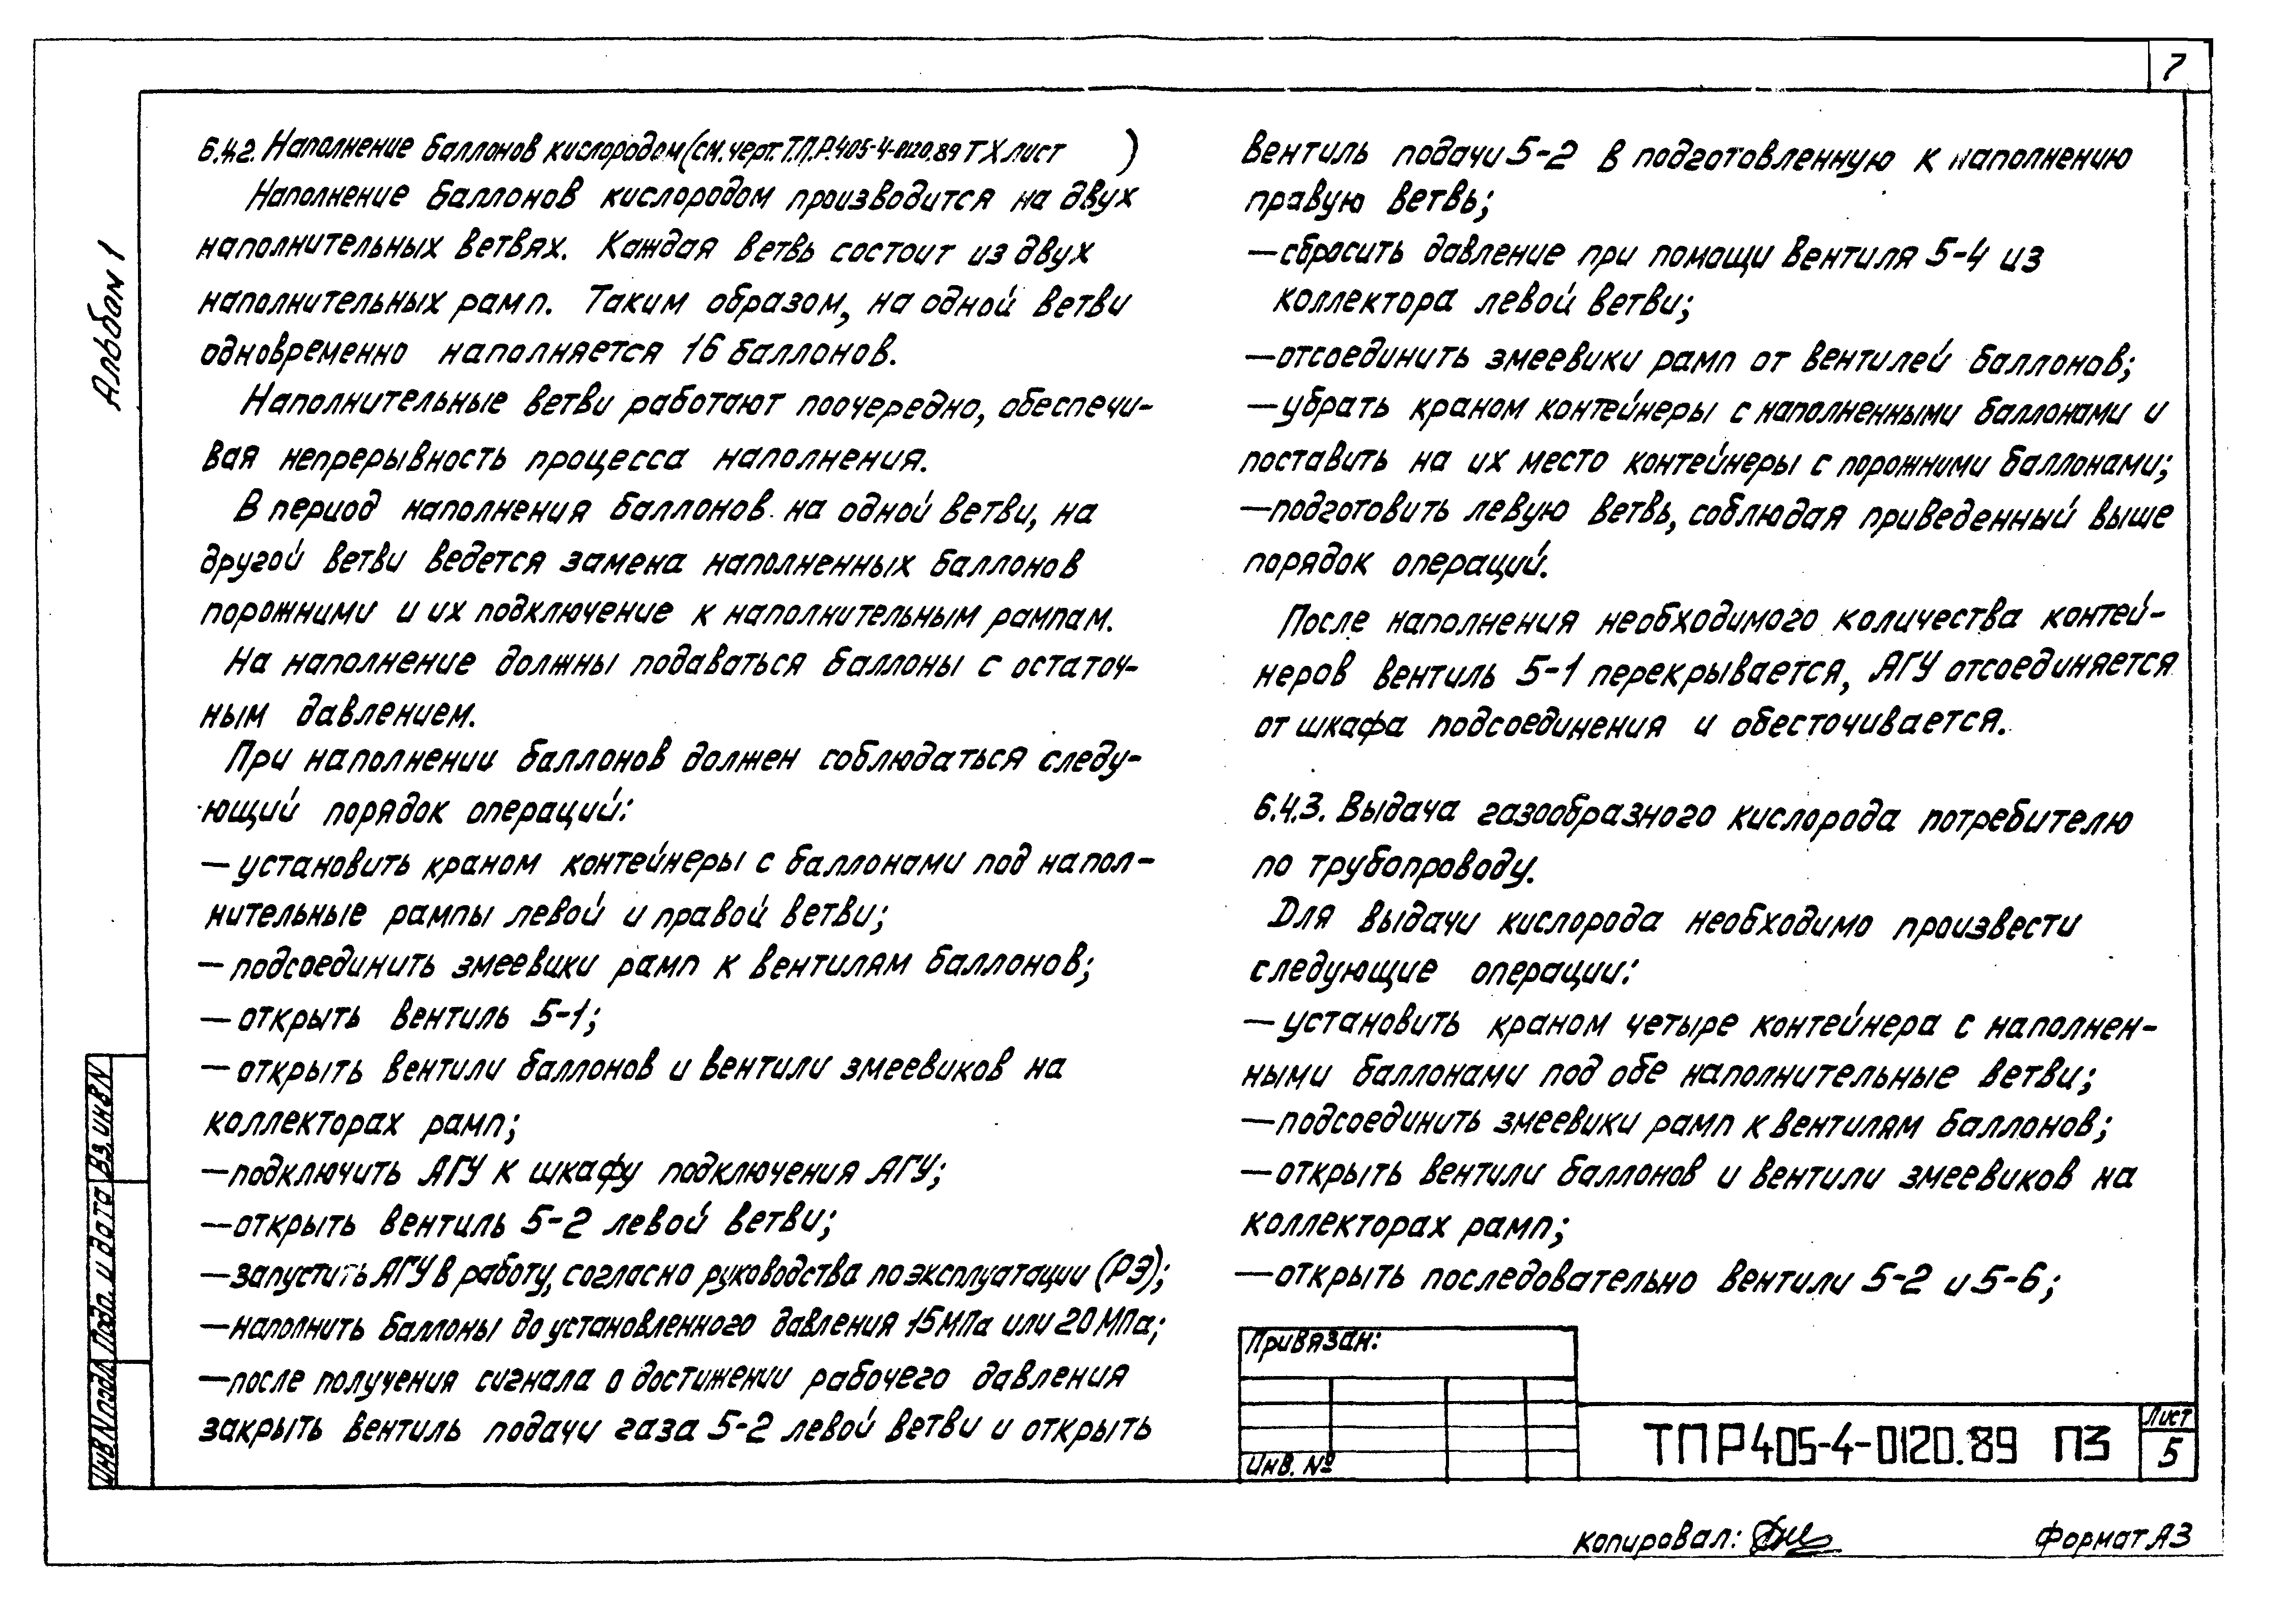 7
Альбом 1
6.4.2. Наполнение баллонов кислородом (см. черт. Т.П.Р. 405-4-0120.89 ТХ лист )
Наполнение баллонов кислородом производится на двух
наполнительных ветвях. Каждая ветвь состоит из двух
наполнительных рамп. Таким образом, на одной ветви
одновременно наполняется 16 баллонов.
Наполнительные ветви работают поочередно, обеспечи-
вая непрерывность процесса наполнения.
В период наполнения баллонов на одной ветви, на
другой ветви ведется замена наполненных баллонов
порожними и их подключение к наполнительным рампам.
На наполнение должны подаваться баллоны с остаточ-
ным давлением.
При наполнении баллонов должен соблюдаться следу-
ющий порядок операций:
— установить краном контейнеры с баллонами под напол-
нительные рампы левой и правой ветви;
— подсоединить змеевики рамп к вентилям баллонов;
— открыть вентиль 5-1;
— открыть вентили баллонов и вентили змеевиков на
коллекторах рамп;
— подключить АГУ к шкафу подключения АГУ;
— открыть вентиль 5-2 левой ветви;
— запустить АГУ в работу, согласно руководства по эксплуатации (РЭ);
— наполнить баллоны до установленного давления 15 МПа или 20 МПа;
— после получения сигнала о достижении рабочего давления
закрыть вентиль подачи газа 5-2 левой ветви и открыть
вентиль подачи 5-2 в подготовленную к наполнению
правую ветвь;
— сбросить давление при помощи вентиля 5-4 из
коллектора левой ветви;
— отсоединить змеевики рамп от вентилей баллонов;
— убрать краном контейнеры с наполненными баллонами и
поставить на их место контейнеры с порожними баллонами;
— подготовить левую ветвь, соблюдая приведенный выше
порядок операций.
После наполнения необходимого количества контей-
неров вентиль 5-1 перекрывается, АГУ отсоединяется
от шкафа подсоединения и обесточивается.
6.4.3. Выдача газообразного кислорода потребителю
по трубопроводу.
Для выдачи кислорода необходимо произвести
следующие операции:
— установить краном четыре контейнера с наполнен-
ными баллонами под обе наполнительные ветви;
— подсоединить змеевики рамп к вентилям баллонов;
— открыть вентили баллонов и вентили змеевиков на
коллекторах рамп;
— открыть последовательно вентили 5-2 и 5-6;
Привязан:
Инв. №
ТПР 405-4-0120.89 ПЗ
Лист
5
Инв N подл
Подп. и дата
Вз. инв N
Копировал:
Формат А3